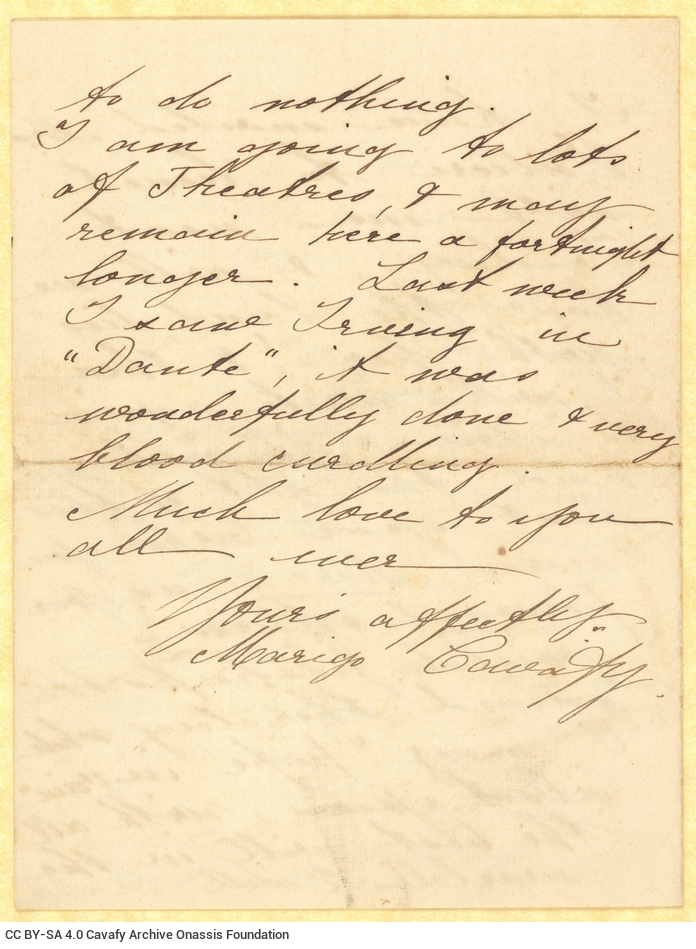 to do nothing.
I am going to lots
of Theatres, & may
remain here a fortnight
longer. Last week
I saw Irving in
"Dante", it was
wonderfully done & very
blood curdling.
Much love to you
all ever
Yours affectly.
Marigo Cavafy.
CC BY-SA 4.0 Cavafy Archive Onassis Foundation